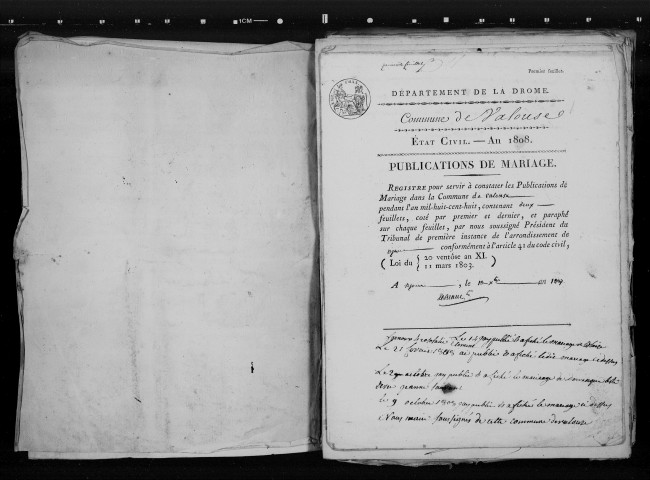 1CM
Premier feuillet.
DÉPARTEMENT DE LA DROME.
Commune de Valouse
ÉTAT CIVIL. — AN 1808.
PUBLICATIONS DE MARIAGE.
REGISTRE pour servir à constater les Publications de
Mariage dans la Commune de Valouse
pendant l'an mil-huit-cent-huit, contenant deux
feuillets, coté par premier et dernier, et paraphé
sur chaque feuillet, par nous soussigné Président du
Tribunal de première instance de l'arrondissement de
conformément à l'article 41 du code civil,
( Loi du { 20 ventôse an XI. } )
11 mars 1803.
A nyons, le
publié & affiché le mariage
Le 21 février 1808 ai publié & affiché le dit mariage ci dessus
Le 2 octobre publié & affiché le mariage de
jeanne
Le 9 octobre 1808 publié & affiché le mariage ci dessus
Nous maire soussigné de cette commune de valouse